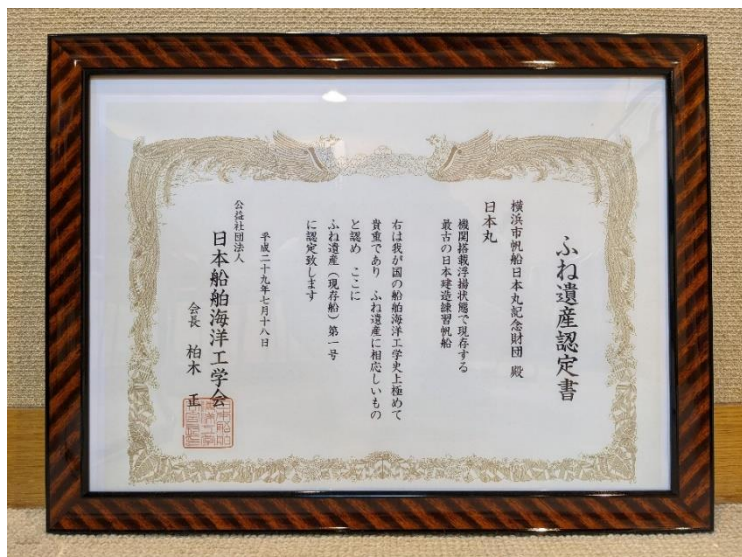 ふね遺産認定書
横浜市帆船日本丸記念財団 殿
日本丸
機関搭載浮揚状態で現存する
最古の日本建造練習帆船
右は我が国の船舶海洋工学史上極めて
貴重であり ふね遺産に相応しいもの
と認め ここに
ふね遺産（現存船）第一号
に認定致します
平成二十九年七月十八日
公益社団法人
日本船舶海洋工学会
会長 柏木 正